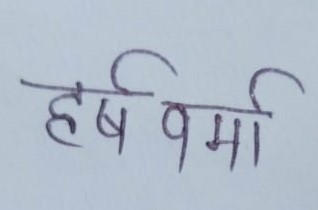 हर्ष वर्मा